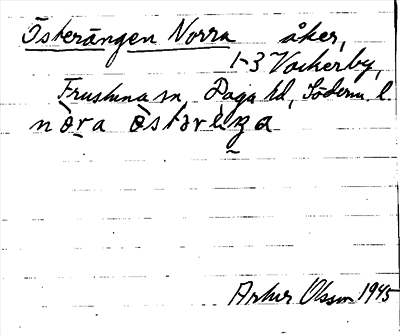 Österängen Norra åker,
1-3 Vackerby,
Frustuna sn, Daga hd, Söderm. l.
nòra ö̀stərɛŋa
Artur Olsson 1945